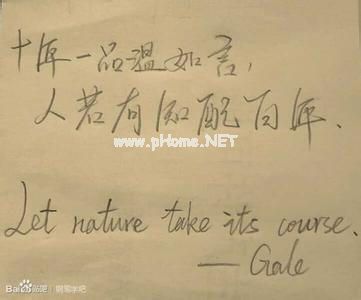 十年一品温如言,
人若有知配百年.
www.pHome.NET
Let nature take its course.
— Gale
Baidu贴吧 | 钢笔字吧